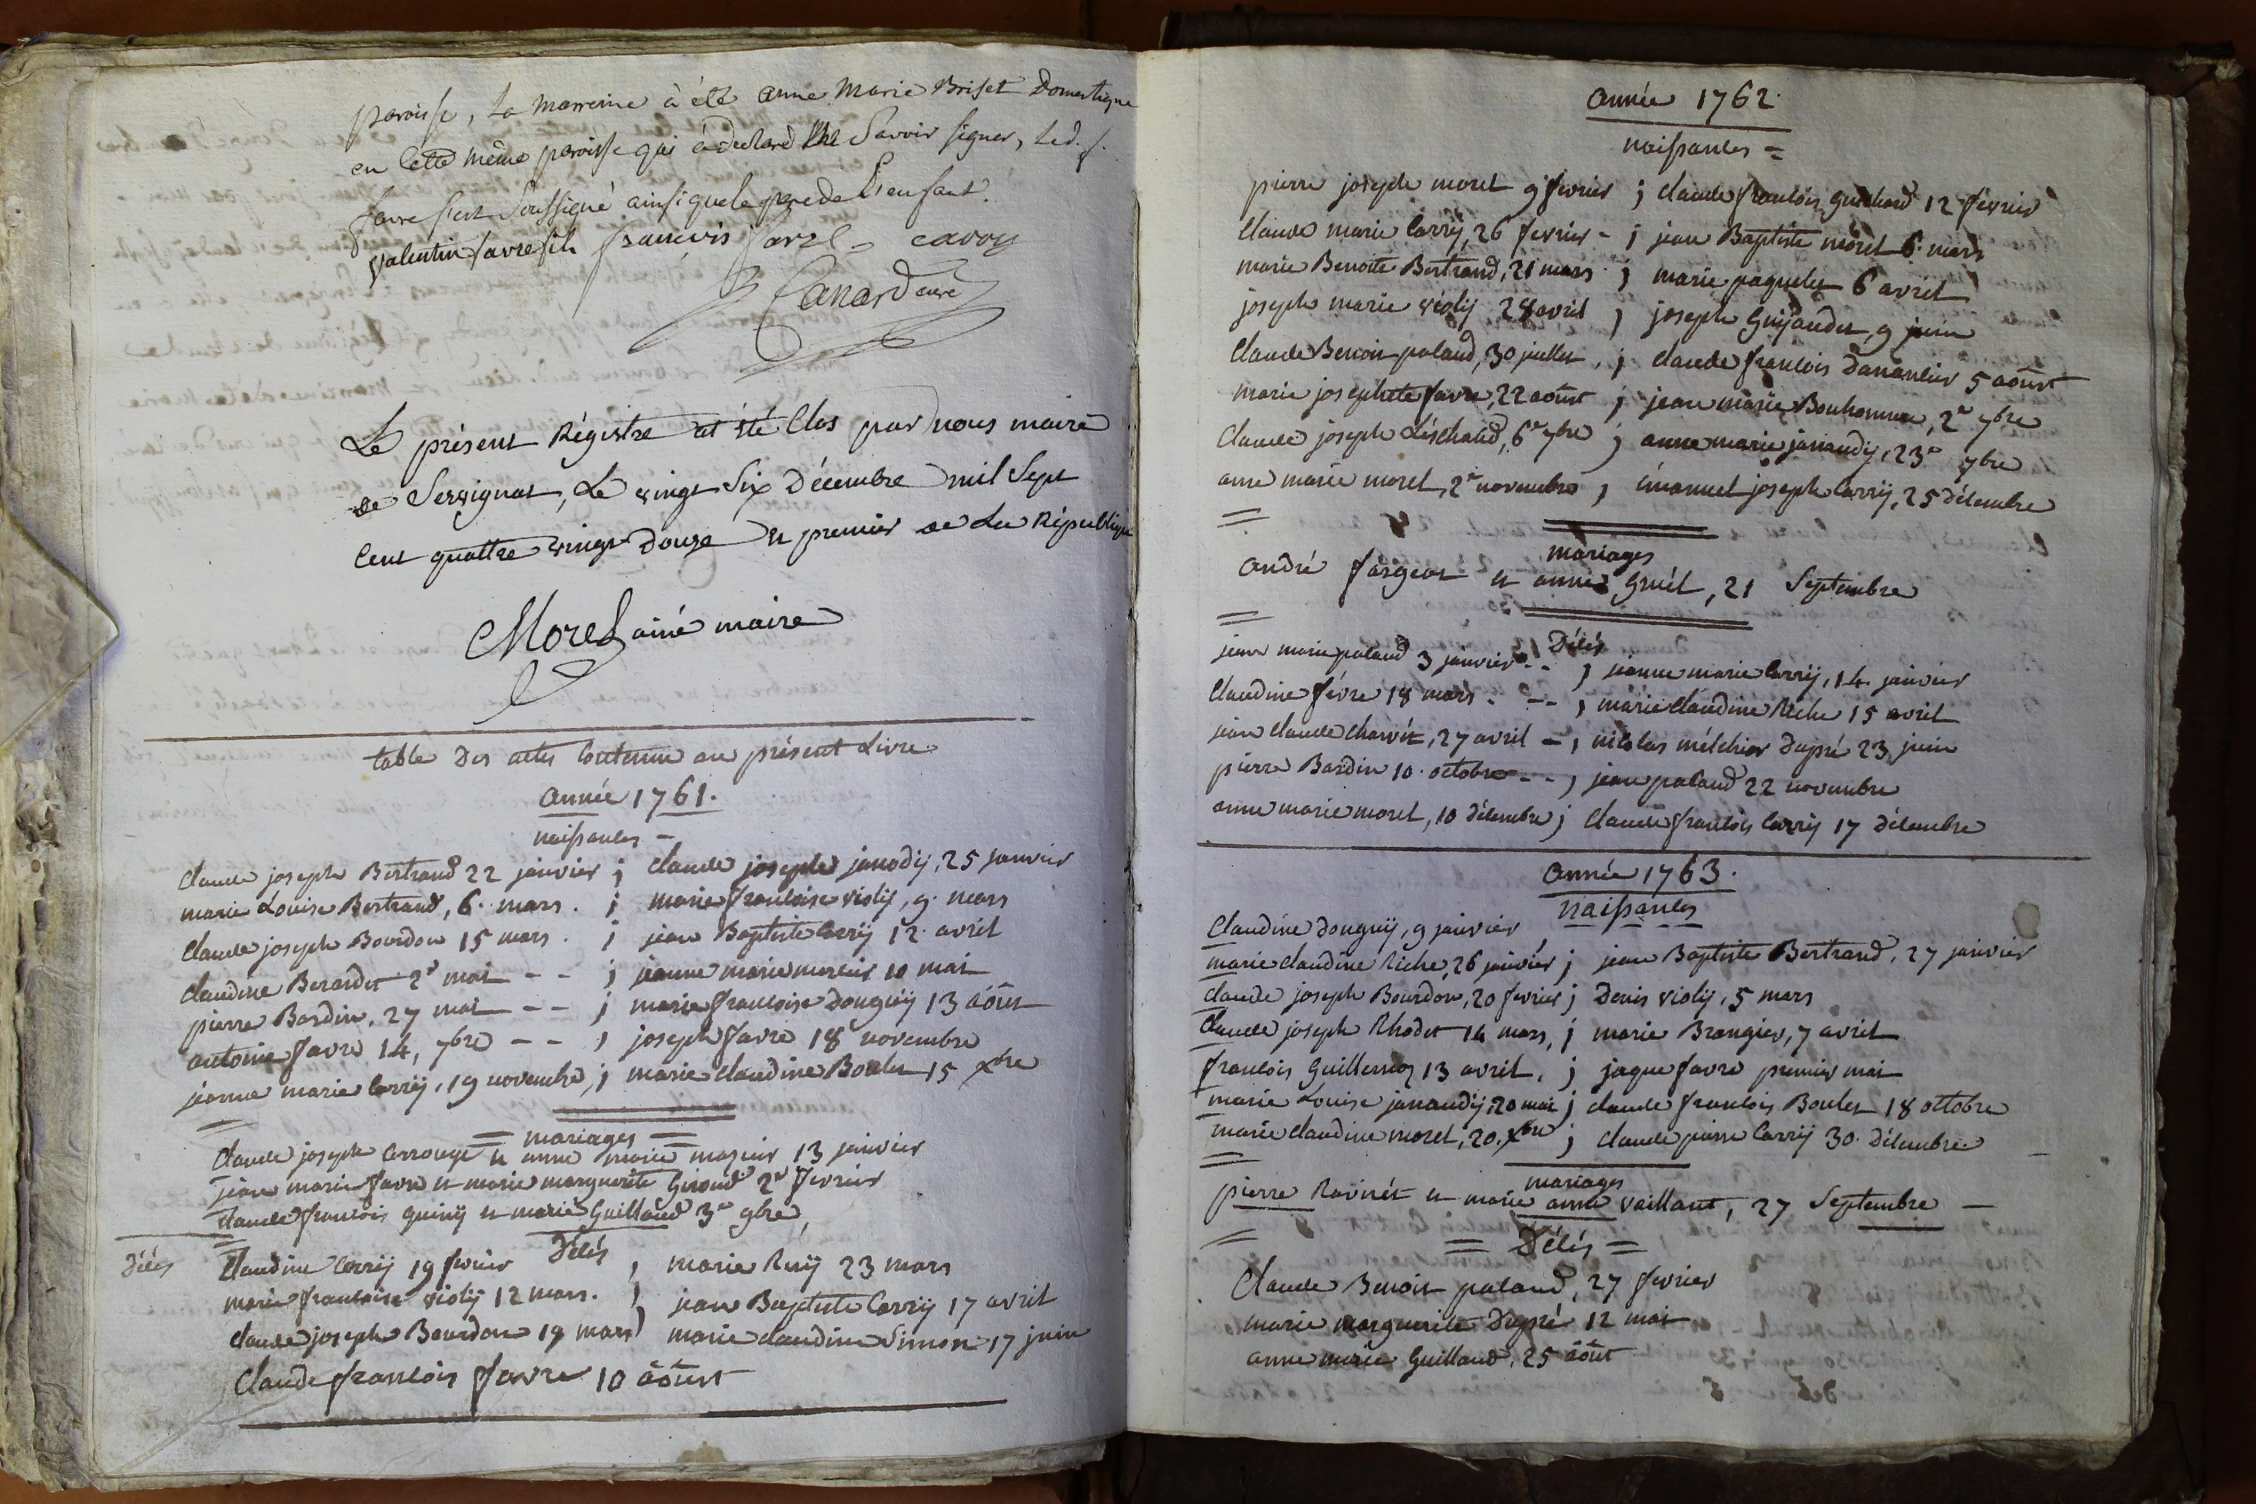 paroisse, la marreine à été anne Marie Briset Domestique
en cette même paroisse qui à declaré ne Savoir signer, led. s.
favre s'est soussigné ainsi que le pere de l'enfant.
valentin favre fils françois favre cavoy
Canard curé
Le présent Régistre at été Clos par nous maire
de Servignat, Le vingt Six Décembre mil Sept
Cent quattre vingt Douze et premier de La République
Morel ainé maire
table Des actes Contenu au présent Livre
année 1761.
naissances =
claude joseph Bertrand 22 janvier ; claude joseph janodij, 25 janvier
marie Louise Bertrand, 6. mars. ; marie francoise violij, 9. mars
claude joseph Bourdon 15 mars. ; jean Baptiste Carrij 12. avril
claudine Berardet 2e mai - - ; jeanne marie 10 mai
pierre Bardin, 27 mai - - ; marie francoise Donguij 13 aôut
antoine favre 14, 7bre - - ; joseph favre 18 novembre
jeanne marie Carrij, 19 novembre ; marie claudine Boulet 15 xbre
= mariages =
claude joseph et anne marie 13 janvier
jean marie favre et marie marguerite Giroud 2e fevrier
claude francois et marie Guillaud 3e 9bre
Décés
Décés Claudine Carrij 19 fevrier ; marie Ruij 23 mars
marie francoise violij 12 mars. ; jean Baptiste Carrij 17 avril
claude joseph Bourdon 19 mars ; marie claudine Simon 17 juin
Claude francois favre 10 aôust
année 1762.
naissances =
pierre joseph morel 9 fevrier ; claude francois Guichard 12 fevrier
Claude marie Carrij, 26 fevrier - ; jean Baptiste morel 6. mars
marie Benoite Bertrand, 21 mars ; marie paquelet 6 avril
joseph marie violij 28 avril ; joseph Guijaudet, 9 juin
Claude Benoit paland, 30 juillet, ; claude francois Danancier 5 aôust
marie josephete favre, 22 aôust ; jean marie Bonhomme, 2e 7bre
Claude joseph Léschaud, 6e 7bre ; anne marie janaudij, 23e 7bre
anne marie morel, 2e novembre ; émanuel joseph Carrij, 25 décembre
mariages
andré fargeot et anne Gruel, 21 Septembre
Décés
jean marie paland 3 janvier - - ; jeanne marie Carrij, 14. janvier
claudine févre 18 mars. - - ; marie Claudine Riche 15 avril
jean claude charvét, 27 avril - ; nicolas mélchior dupré 23 juin
pierre Bardin 10. octobre - - ; jean paland 22 novembre
anne marie morel, 10 décembre ; Claude francois Carrij 17 décembre
année 1763.
naissances
Claudine Donguij, 9 janvier
marie claudine Riche, 26 janvier ; jean Baptiste Bertrand, 27 janvier
claude joseph Bourdon, 20 fevrier ; Denis violij, 5 mars
claude joseph Rhodet 14 mars, ; marie Brangier, 7 avril
francois Guillermoz 13 avril, ; jaque favre premier mai
marie Louise janaudij, 20 mai ; claude francois Boulet 18 octobre
marie claudine morel, 20. xbre ; claude pierre Carrij 30. décembre
mariages
pierre Ravinét et marie anne vaillant, 27 Septembre
= Décés =
Claude Benoit paland, 27 fevrier
marie marguerite Dupré 12 mai
anne marie Guillaud, 25 aôut